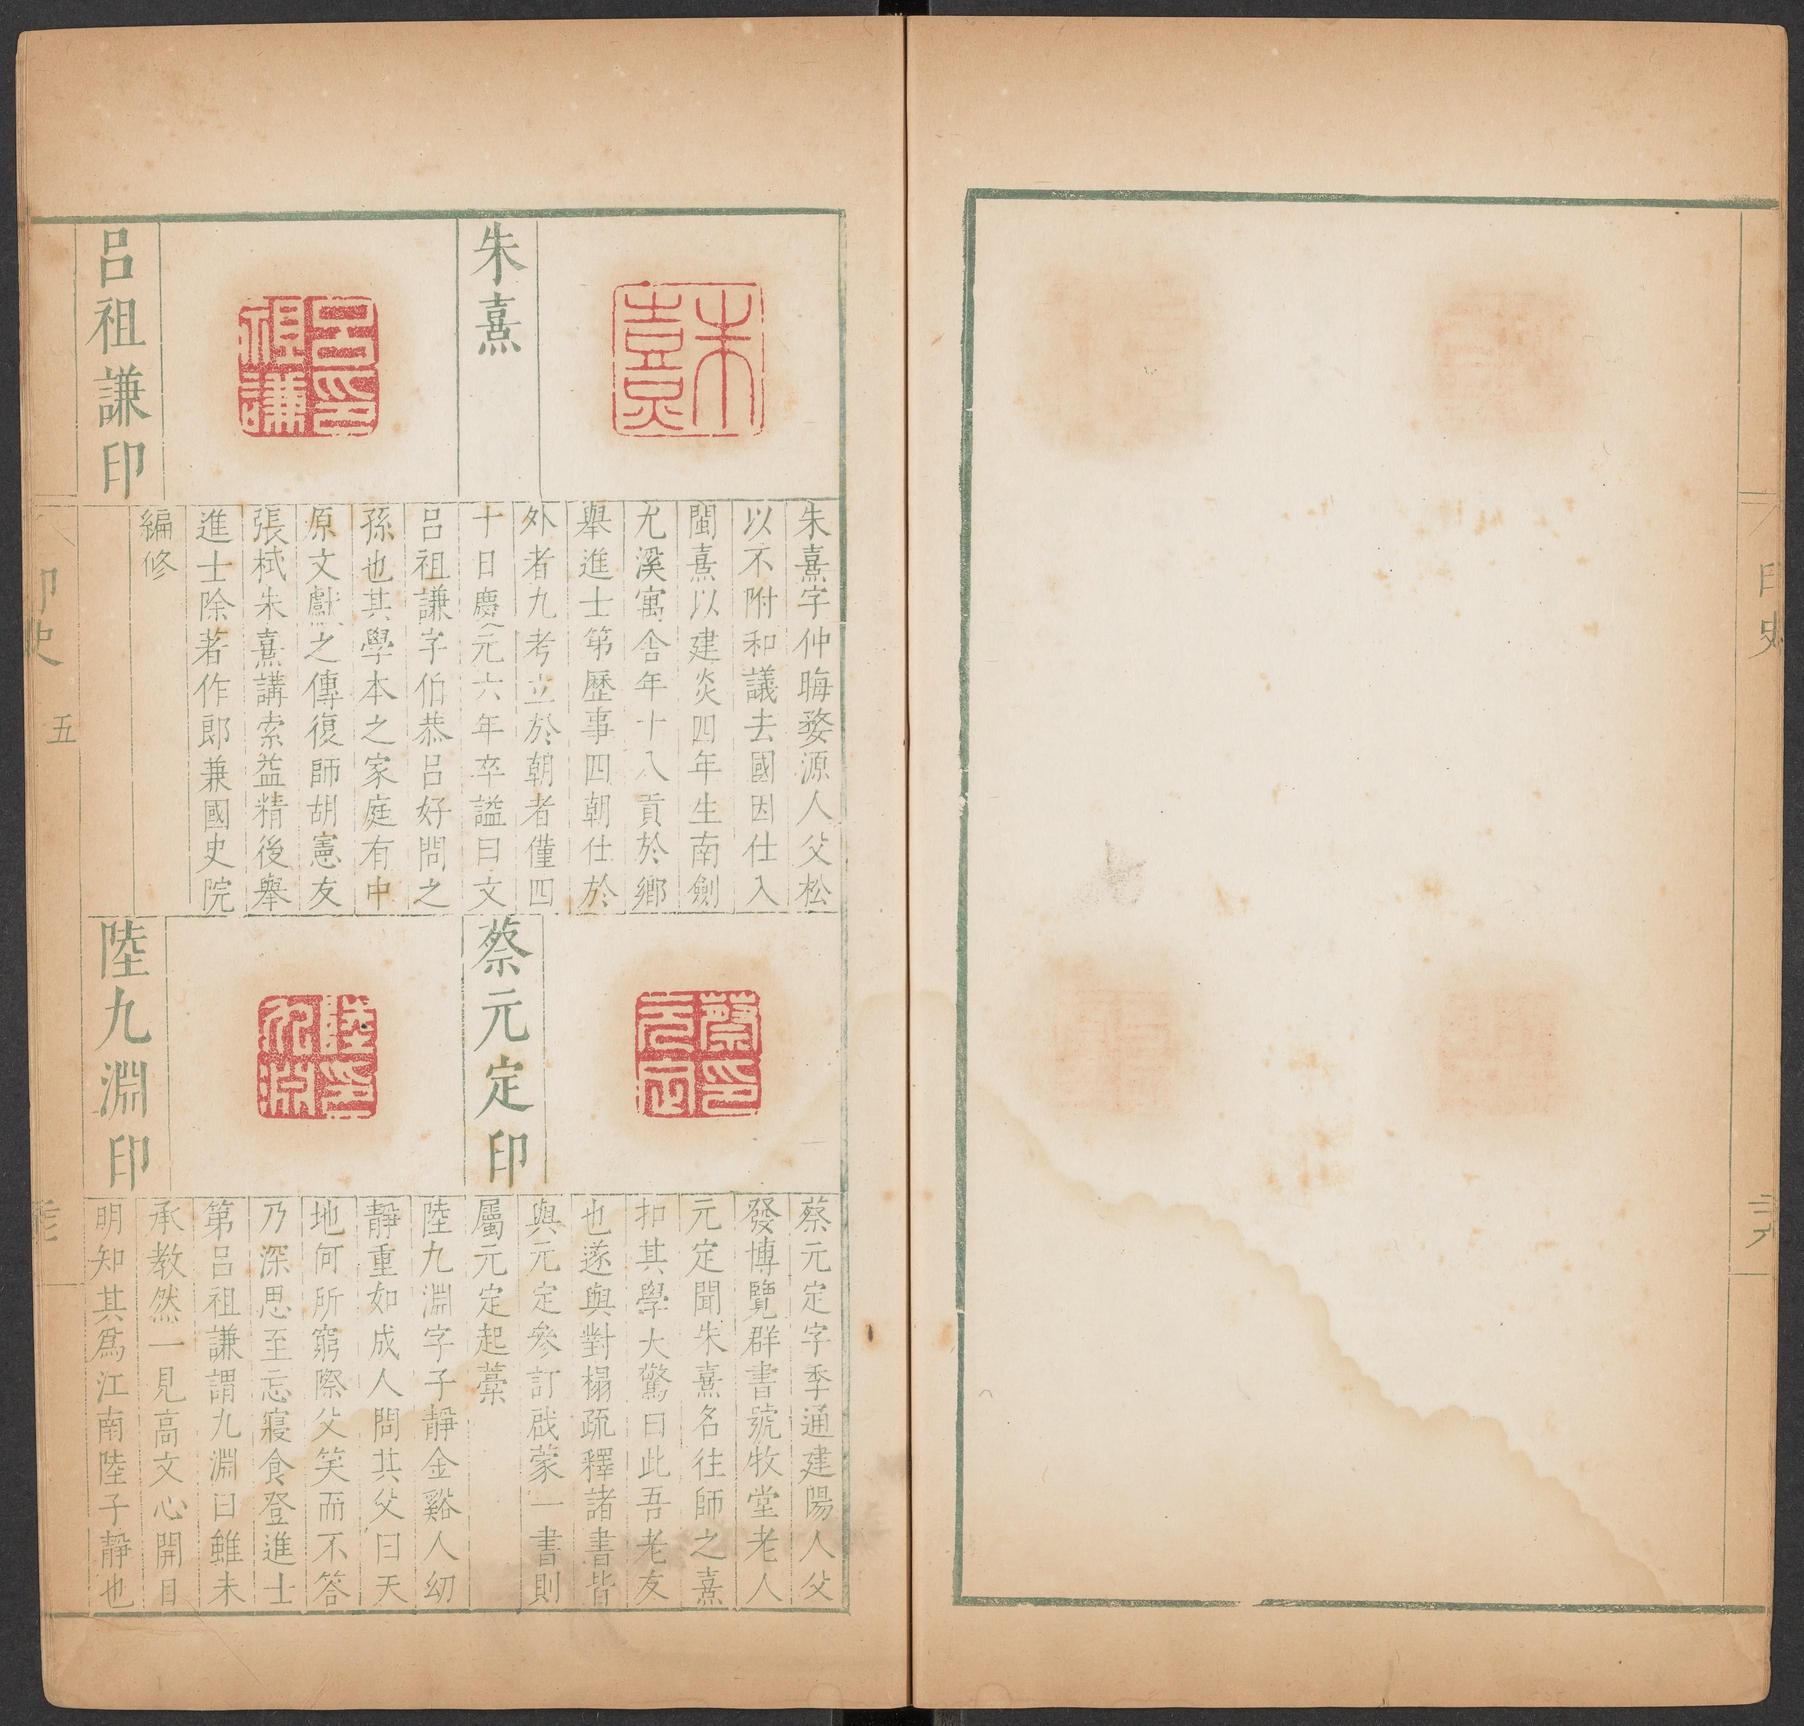 印史
朱熹
朱熹
朱熹字仲晦婺源人父松
以不附和議去國因仕入
閩熹以建炎四年生南劍
尤溪寓舍年十八貢於鄉
舉進士第歷事四朝仕於
外者九考立於朝者僅四
十日慶元六年卒謚曰文
呂印祖謙
呂祖謙印
呂祖謙字伯恭呂好問之
孫也其學本之家庭有中
原文獻之傳復師胡憲友
張栻朱熹講索益精後舉
進士除著作郎兼國史院
編修
蔡印元定
蔡元定印
蔡元定字季通建陽人父
發博覽群書號牧堂老人
元定聞朱熹名往師之熹
扣其學大驚曰此吾老友
也遂與對榻疏釋諸書皆
與元定參訂啟蒙一書則
屬元定起藁
陸印九淵
陸九淵印
陸九淵字子靜金谿人幼
靜重如成人問其父曰天
地何所窮際父笑而不答
乃深思至忘寢食登進士
第呂祖謙謂九淵曰雖未
承教然一見高文心開目
明知其為江南陸子靜也
印史
五